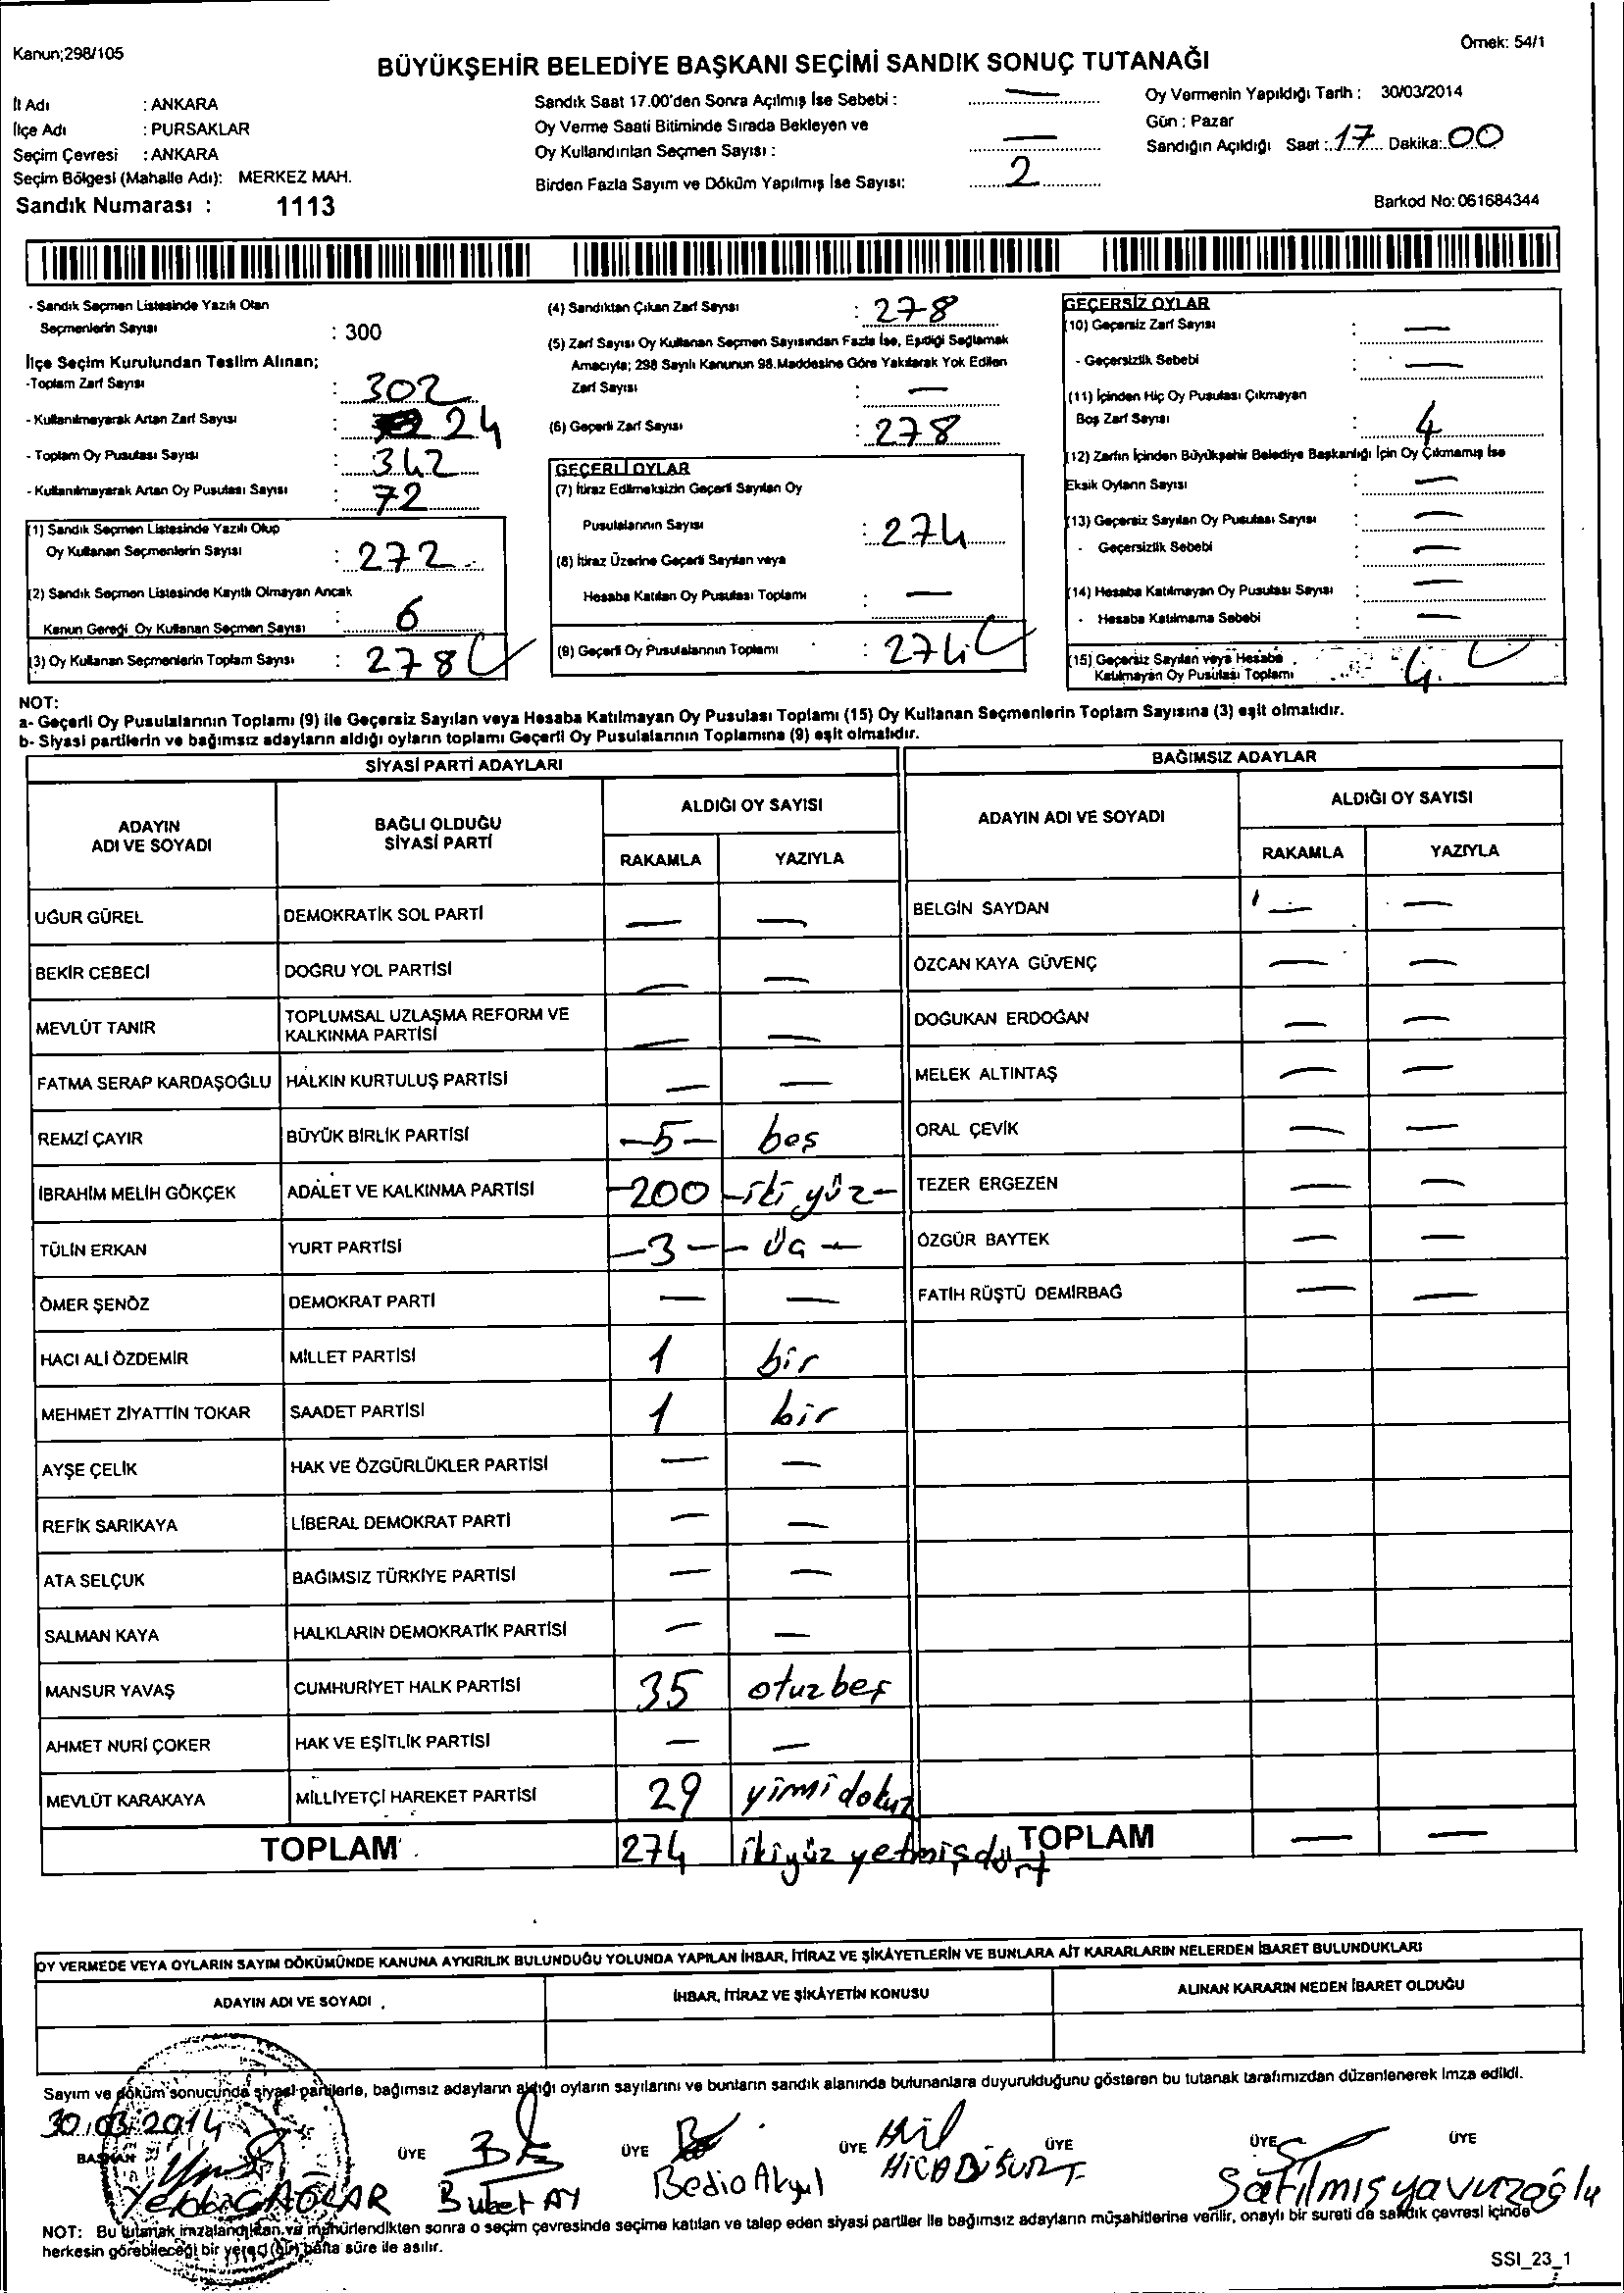 Kanun;298/105
Örnek: 54/1
BÜYÜKŞEHİR BELEDİYE BAŞKANI SEÇİMİ SANDIK SONUÇ TUTANAĞI
İl Adı : ANKARA
İlçe Adı : PURSAKLAR
Seçim Çevresi : ANKARA
Seçim Bölgesi (Mahalle Adı): MERKEZ MAH.
Sandık Numarası : 1113
Sandık Saat 17.00'den Sonra Açılmış İse Sebebi : —
Oy Verme Saati Bitiminde Sırada Bekleyen ve
Oy Kullandırılan Seçmen Sayısı : —
Birden Fazla Sayım ve Döküm Yapılmış İse Sayısı: 2
Oy Vermenin Yapıldığı Tarih : 30/03/2014
Gün : Pazar
Sandığın Açıldığı Saat : 17 Dakika: 00
Barkod No: 061684344
- Sandık Seçmen Listesinde Yazılı Olan
Seçmenlerin Sayısı : 300
İlçe Seçim Kurulundan Teslim Alınan;
-Toplam Zarf Sayısı : 302
- Kullanılmayarak Artan Zarf Sayısı : 24
- Toplam Oy Pusulası Sayısı : 342
- Kullanılmayarak Artan Oy Pusulası Sayısı : 72
(1) Sandık Seçmen Listesinde Yazılı Olup
Oy Kullanan Seçmenlerin Sayısı : 272
(2) Sandık Seçmen Listesinde Kayıtlı Olmayan Ancak
Kanun Gereği Oy Kullanan Seçmen Sayısı : 6
(3) Oy Kullanan Seçmenlerin Toplam Sayısı : 278
(4) Sandıktan Çıkan Zarf Sayısı : 278
(5) Zarf Sayısı Oy Kullanan Seçmen Sayısından Fazla İse, Eşitliği Sağlamak
Amacıyla; 298 Sayılı Kanunun 98.Maddesine Göre Yakılarak Yok Edilen
Zarf Sayısı : —
(6) Geçerli Zarf Sayısı : 278
GEÇERLİ OYLAR
(7) İtiraz Edilmeksizin Geçerli Sayılan Oy
Pusulalarının Sayısı : 274
(8) İtiraz Üzerine Geçerli Sayılan veya
Hesaba Katılan Oy Pusulası Toplamı : —
(9) Geçerli Oy Pusulalarının Toplamı : 274
GEÇERSİZ OYLAR
(10) Geçersiz Zarf Sayısı : —
- Geçersizlik Sebebi : —
(11) İçinden Hiç Oy Pusulası Çıkmayan
Boş Zarf Sayısı : 4
(12) Zarfın İçinden Büyükşehir Belediye Başkanlığı İçin Oy Çıkmamış İse
Eksik Oyların Sayısı : —
(13) Geçersiz Sayılan Oy Pusulası Sayısı : —
- Geçersizlik Sebebi : —
(14) Hesaba Katılmayan Oy Pusulası Sayısı : —
- Hesaba Katılmama Sebebi : —
(15) Geçersiz Sayılan veya Hesaba
Katılmayan Oy Pusulası Toplamı : 4
NOT:
a- Geçerli Oy Pusulalarının Toplamı (9) ile Geçersiz Sayılan veya Hesaba Katılmayan Oy Pusulası Toplamı (15) Oy Kullanan Seçmenlerin Toplam Sayısına (3) eşit olmalıdır.
b- Siyasi partilerin ve bağımsız adayların aldığı oyların toplamı Geçerli Oy Pusulalarının Toplamına (9) eşit olmalıdır.
SİYASİ PARTİ ADAYLARI
ADAYIN ADI VE SOYADI BAĞLI OLDUĞU SİYASİ PARTİ ALDIĞI OY SAYISI
RAKAMLA YAZIYLA
UĞUR GÜREL DEMOKRATİK SOL PARTİ — —
BEKİR CEBECİ DOĞRU YOL PARTİSİ — —
MEVLÜT TANIR TOPLUMSAL UZLAŞMA REFORM VE KALKINMA PARTİSİ — —
FATMA SERAP KARDAŞOĞLU HALKIN KURTULUŞ PARTİSİ — —
REMZİ ÇAYIR BÜYÜK BİRLİK PARTİSİ –5– beş
İBRAHİM MELİH GÖKÇEK ADALET VE KALKINMA PARTİSİ –200 –iki yüz–
TÜLİN ERKAN YURT PARTİSİ –3– – üç –
ÖMER ŞENÖZ DEMOKRAT PARTİ — —
HACI ALİ ÖZDEMİR MİLLET PARTİSİ 1 bir
MEHMET ZİYATTİN TOKAR SAADET PARTİSİ 1 bir
AYŞE ÇELİK HAK VE ÖZGÜRLÜKLER PARTİSİ — —
REFİK SARIKAYA LİBERAL DEMOKRAT PARTİ — —
ATA SELÇUK BAĞIMSIZ TÜRKİYE PARTİSİ — —
SALMAN KAYA HALKLARIN DEMOKRATİK PARTİSİ — —
MANSUR YAVAŞ CUMHURİYET HALK PARTİSİ 35 otuzbeş
AHMET NURİ ÇOKER HAK VE EŞİTLİK PARTİSİ — —
MEVLÜT KARAKAYA MİLLİYETÇİ HAREKET PARTİSİ 29 yirmi dokuz
TOPLAM 274 ikiyüz yetmişdört
BAĞIMSIZ ADAYLAR
ADAYIN ADI VE SOYADI ALDIĞI OY SAYISI
RAKAMLA YAZIYLA
BELGİN SAYDAN — —
ÖZCAN KAYA GÜVENÇ — —
DOĞUKAN ERDOĞAN — —
MELEK ALTINTAŞ — —
ORAL ÇEVİK — —
TEZER ERGEZEN — —
ÖZGÜR BAYTEK — —
FATİH RÜŞTÜ DEMİRBAĞ — —
TOPLAM — —
OY VERMEDE VEYA OYLARIN SAYIM DÖKÜMÜNDE KANUNA AYKIRILIK BULUNDUĞU YOLUNDA YAPILAN İHBAR, İTİRAZ VE ŞİKÂYETLERİN VE BUNLARA AİT KARARLARIN NELERDEN İBARET BULUNDUKLARI
ADAYIN ADI VE SOYADI İHBAR, İTİRAZ VE ŞİKÂYETİN KONUSU ALINAN KARARIN NEDEN İBARET OLDUĞU
Sayım ve döküm sonucunda siyasi partilerle, bağımsız adayların aldığı oyların sayılarını ve bunların sandık alanında bulunanlara duyurulduğunu gösteren bu tutanak tarafımızdan düzenlenerek imza edildi.
30.03.2014
BAŞKAN ÜYE ÜYE ÜYE ÜYE ÜYE ÜYE
AY Bedia Akgül HİCABİ Satılmış yavuzoğlu
NOT: Bu tutanak imzalandıktan ve mühürlendikten sonra o seçim çevresinde seçime katılan ve talep eden siyasi partiler ile bağımsız adayların müşahitlerine verilir, onaylı bir sureti de sandık çevresi içinde
herkesin görebileceği bir yere (bir) hafta süre ile asılır.
SSI_23_1